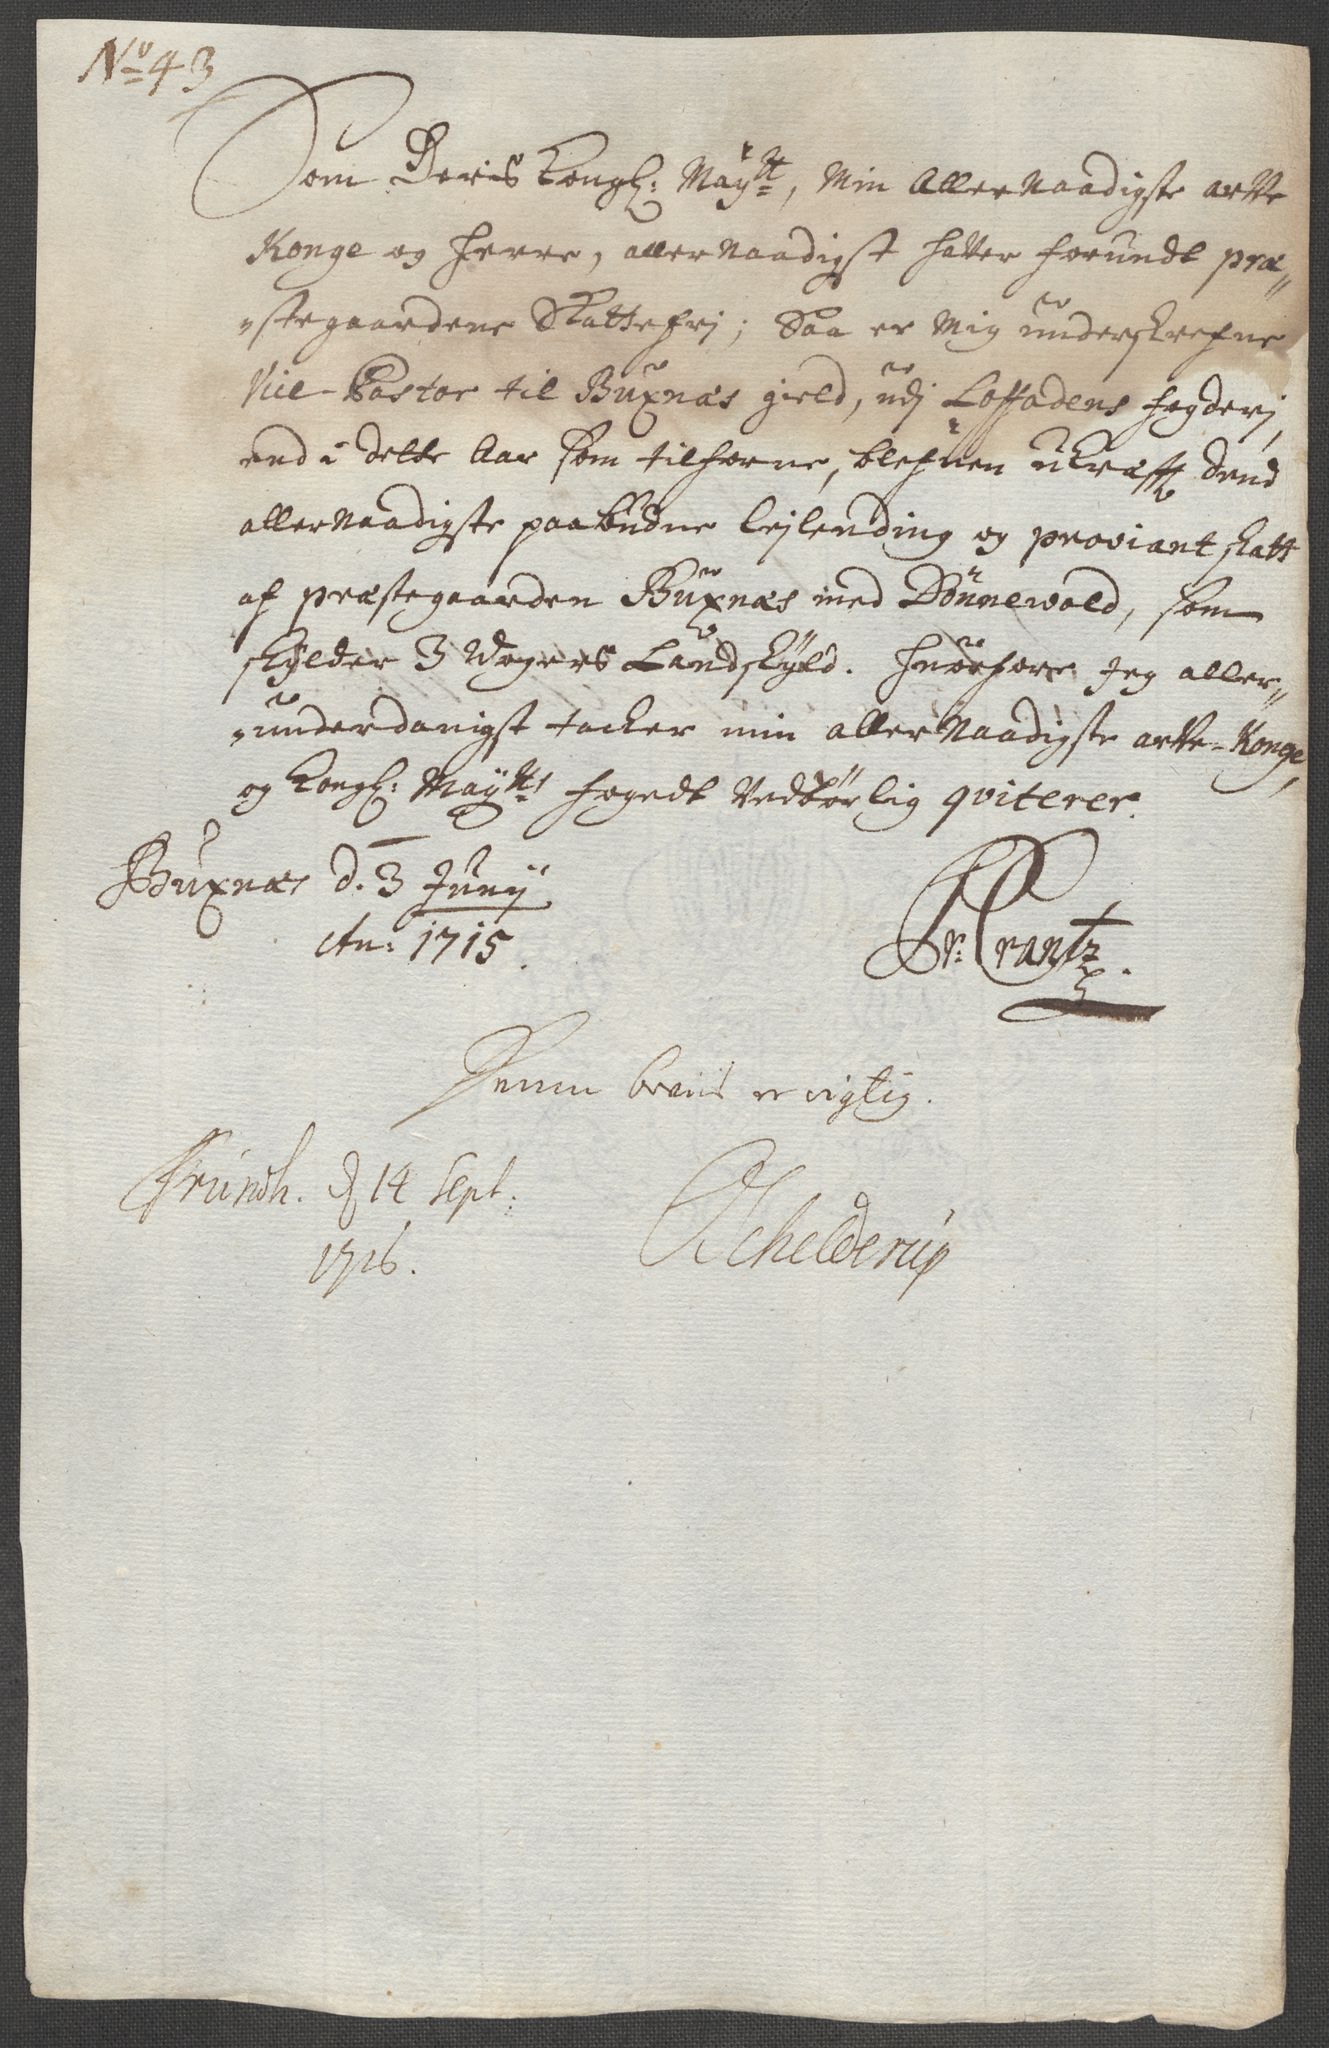 No 43
Som Deris Kongl: Mayst, Min Aller Naadigste arfve
Konge og Herre, aller Naadigst hafver forundt præ„
„stegaardene Skattefri; Saa er Mig underskrefne
Vice-Pastor til Buxnæs gield, udj Loffodens fogderj,
end i dette Aar som tilforne, blefven ukræfft dend
allernaadigste paabudne leilending og proviant skatt
af præstegaarden Buxnæs med Dönnewold, som
skylder 3 Wogers Landskyld. Hvorfore Jeg aller„
„underdanigst tacker min aller Naadigste arfve-Konge,
og Kongl: Maytts foged Vedbörlig qviterer.
Buxnæs d. 3 Junij
An: 1715.
Fr: Crantz.
Denne beviis er rigtig.
Trundh. d 14 Sept:
1716.
Schelderup